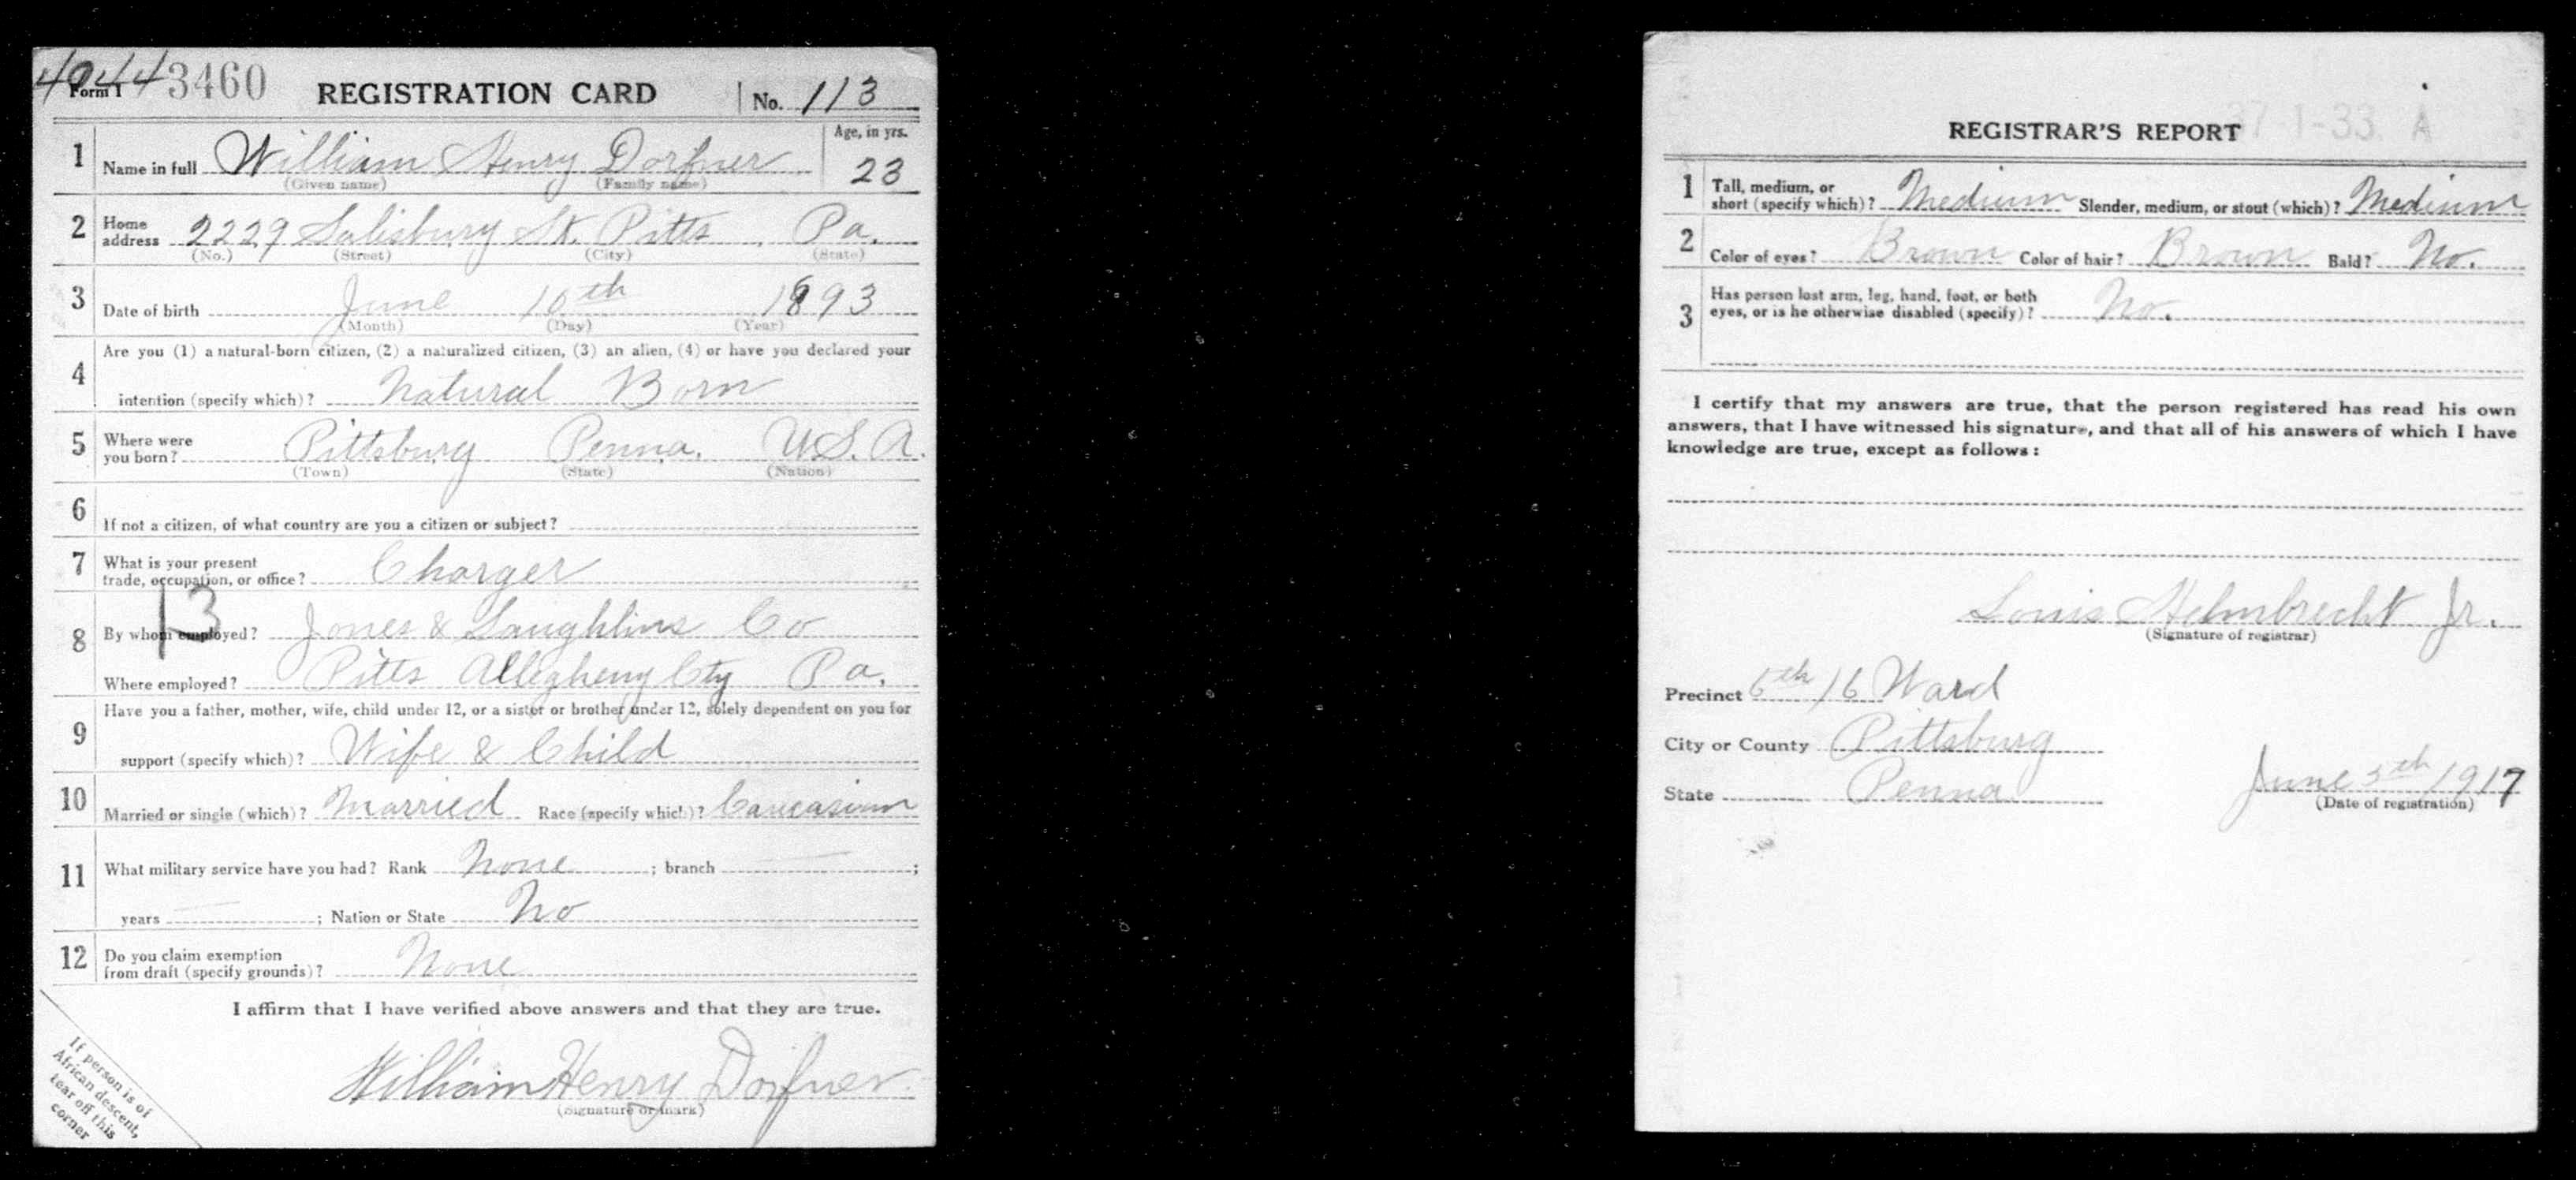 4044 3460
Form 1 REGISTRATION CARD No. 113
1 Name in full William Henry Dorfner Age, in yrs. 23
(Given name) (Family name)
2 Home address 2229 Salisbury St. Pitts Pa.
(No.) (Street) (City) (State)
3 Date of birth June 10th 1893
(Month) (Day) (Year)
4 Are you (1) a natural-born citizen, (2) a naturalized citizen, (3) an alien, (4) or have you declared your
intention (specify which)? Natural Born
5 Where were you born? Pittsburg Penna. U.S.A.
(Town) (State) (Nation)
6 If not a citizen, of what country are you a citizen or subject?
7 What is your present
trade, occupation, or office? Charger
13
8 By whom employed? Jones & Laughlins Co
Where employed? Pitts Allegheny Cty Pa.
9 Have you a father, mother, wife, child under 12, or a sister or brother under 12, solely dependent on you for
support (specify which)? Wife & Child
10 Married or single (which)? Married Race (specify which)? Caucasian
11 What military service have you had? Rank None ; branch ;
years ; Nation or State No
12 Do you claim exemption
from draft (specify grounds)? None
I affirm that I have verified above answers and that they are true.
William Henry Dorfner
(Signature or mark)
If person is of
African descent,
tear off this
corner
37-1-33 A
REGISTRAR'S REPORT
1 Tall, medium, or
short (specify which)? Medium Slender, medium, or stout (which)? Medium
2 Color of eyes? Brown Color of hair? Brown Bald? No.
3 Has person lost arm, leg, hand, foot, or both
eyes, or is he otherwise disabled (specify)? No.
I certify that my answers are true, that the person registered has read his own
answers, that I have witnessed his signature, and that all of his answers of which I have
knowledge are true, except as follows:
Louis Helmbrecht Jr.
(Signature of registrar)
Precinct 6th 16 Ward
City or County Pittsburg
State Penna June 5th 1917
(Date of registration)